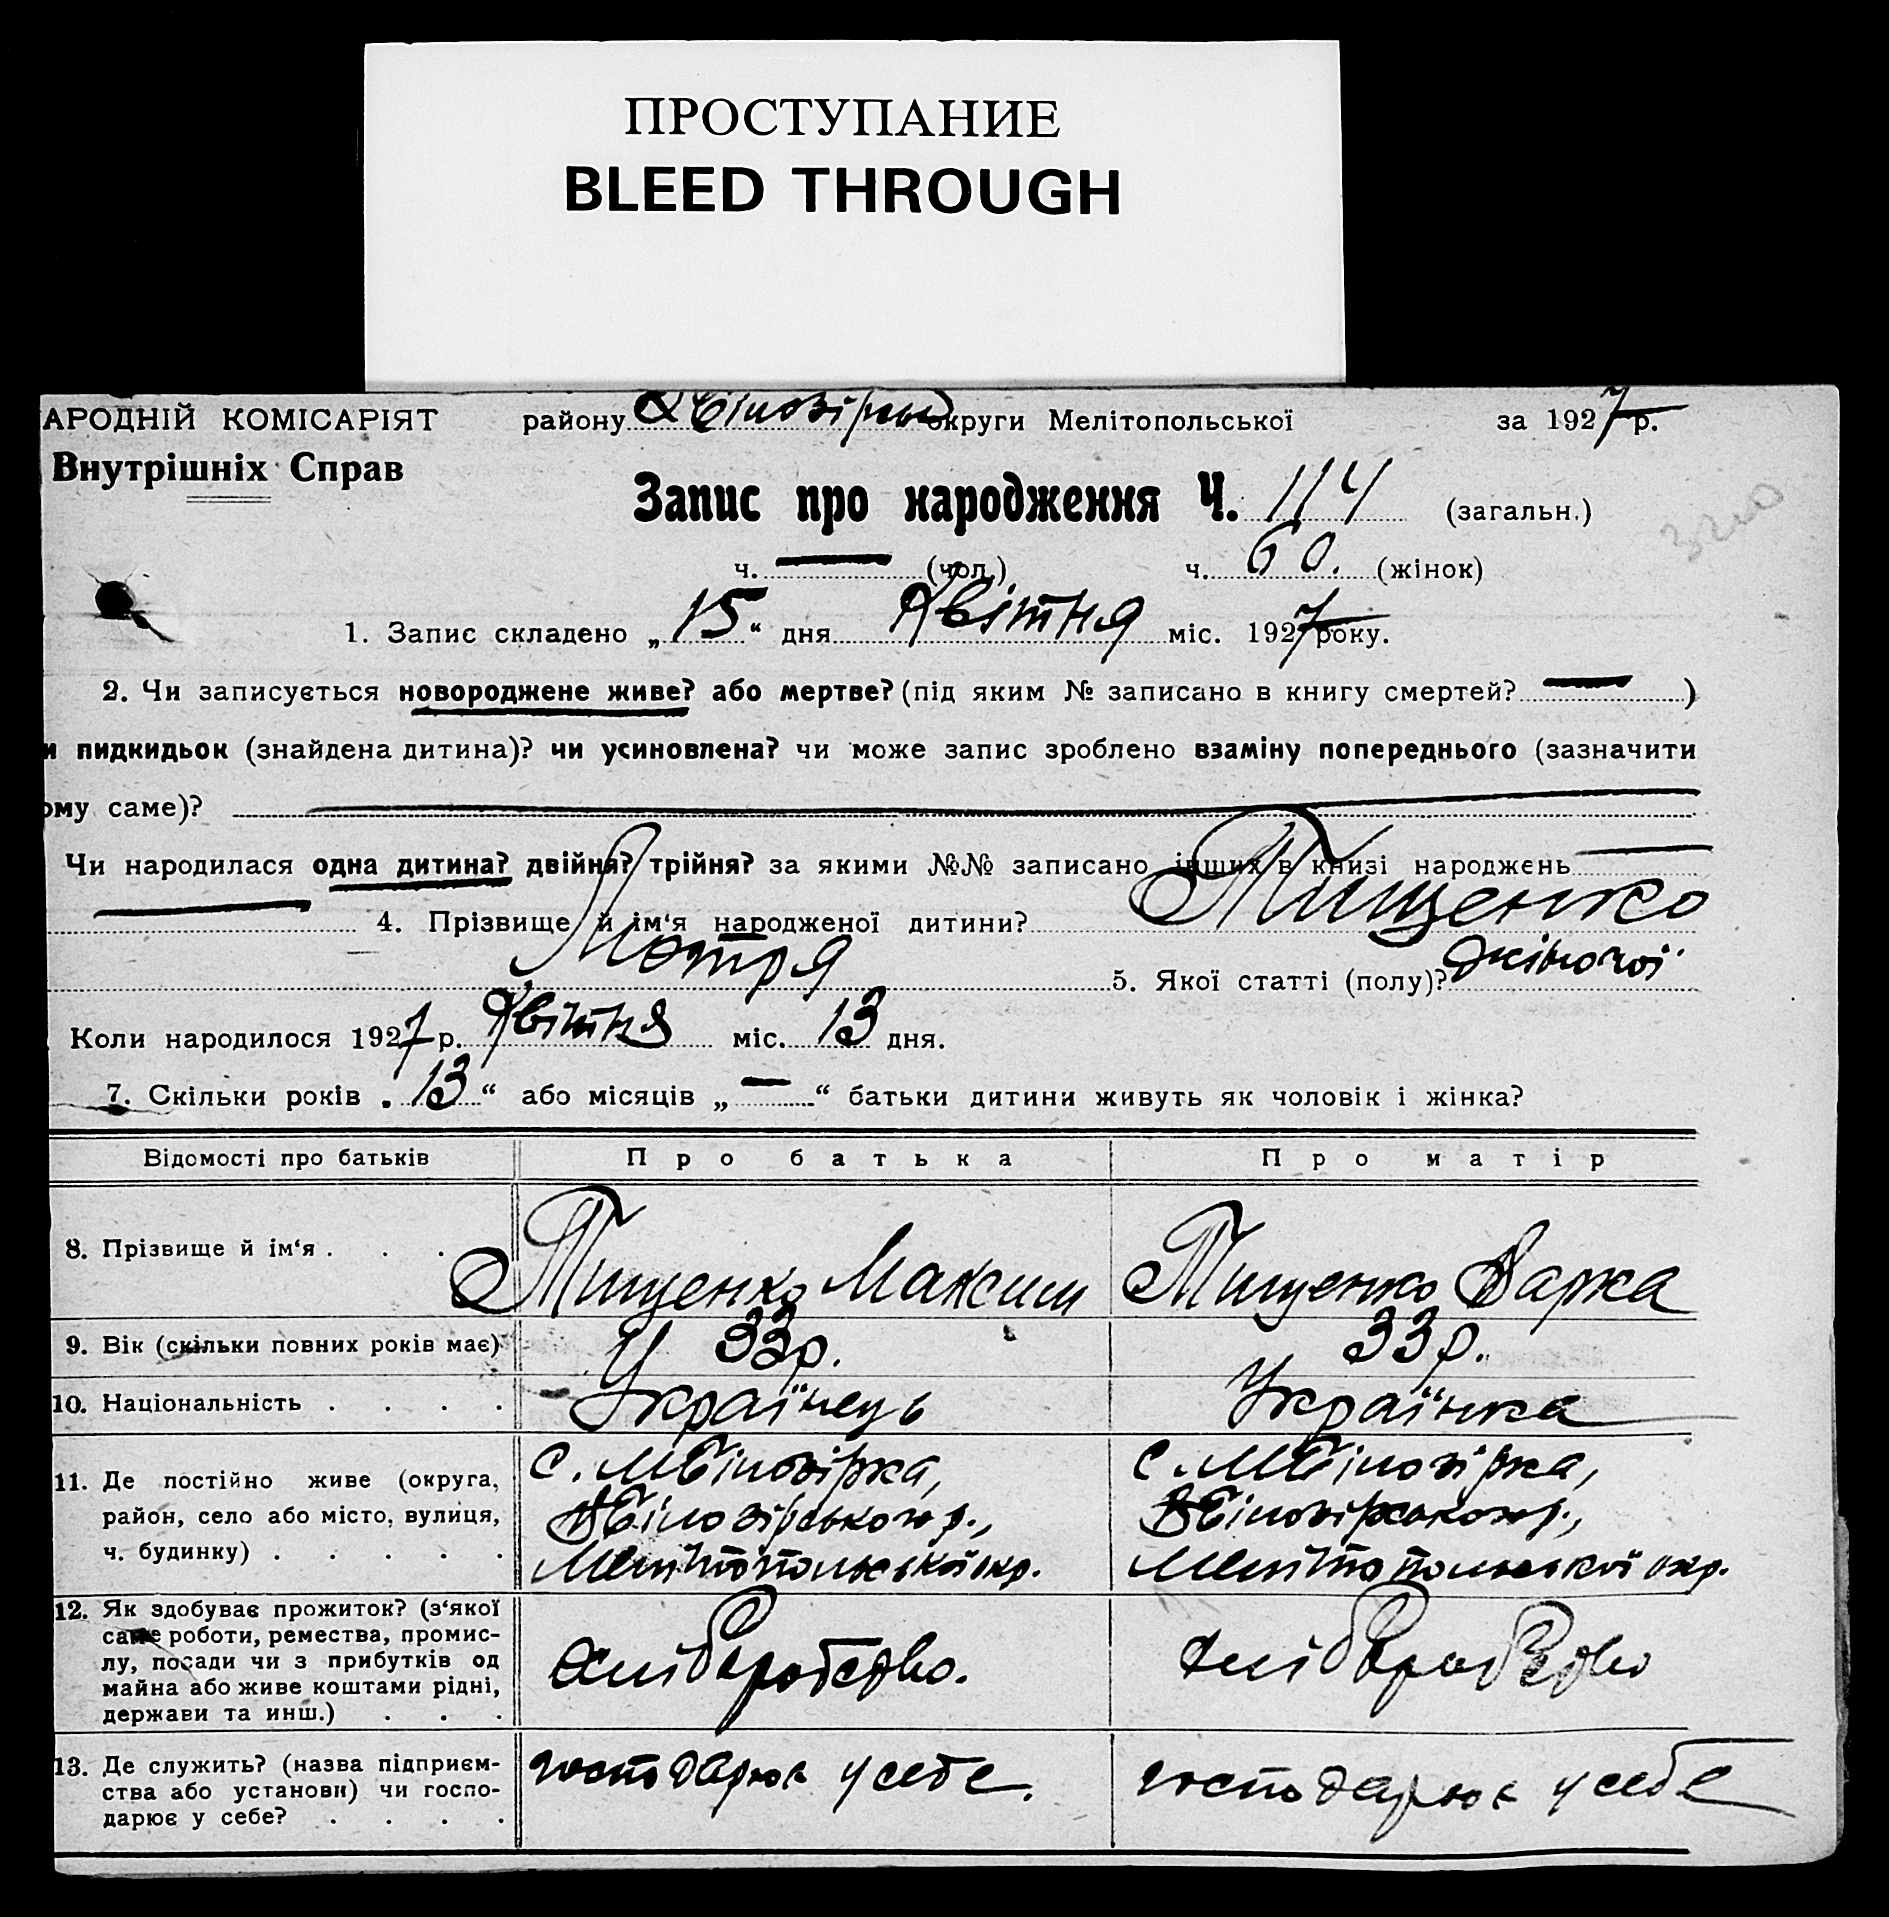 ПРОСТУПАНИЕ
BLEED THROUGH
АРОДНІЙ КОМІСАРІЯТ району округи Мелітопольської за 1927 р.
Внутрішніх Справ
Запис про народження Ч. 114 (загальн.)
ч. — (чол.) ч. 60. (жінок)
1. Запис складено „15“ дня Квітня міс. 1927 року.
2. Чи записується новороджене живе? або мертве? (під яким № записано в книгу смертей? — )
и пидкидьок (знайдена дитина)? чи усиновлена? чи може запис зроблено взаміну попереднього (зазначити
ому саме)? —
Чи народилася одна дитина? двійня? трійня? за якими №№ записано інших в книзі народжень —
— 4. Прізвище й ім‘я народженої дитини? Тищенко
Мотря 5. Якої статті (полу)? жіночої
Коли народилося 1927 р. Квітня міс. 13 дня.
7. Скільки років „13“ або місяців „—“ батьки дитини живуть як чоловік і жінка?
Відомості про батьків Про батька Про матір
8. Прізвище й ім‘я . . . Тищенко Максим Тищенко Варка
9. Вік (скільки повних років має) 33 р. 33 р.
10. Національність . . . . Українець Українка
11. Де постійно живе (округа,
район, село або місто, вулиця,
ч. будинку) . . . . .
Мелітопольської окр. Мелітопольської окр.
12. Як здобуває прожиток? (з‘якої
саме роботи, ремества, промис-
лу, посади чи з прибутків од
майна або живе коштами рідні,
держави та инш.) . . .
Хліборобство. Хліборобство
13. Де служить? (назва підприєм-
ства або установи) чи госпо-
дарює у себе? . . . .
господарює у себе. господарює у себе